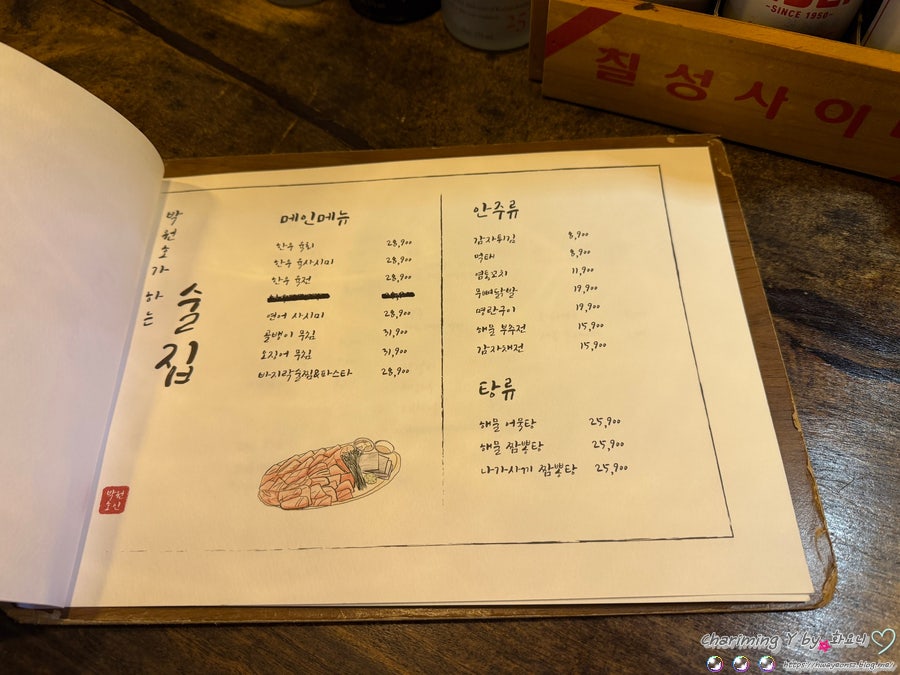 -SINCE 1950-
칠성사이
박원호가 하는
술집
메인메뉴
한우 육회 28,900
한우 육사시미 28,900
한우 육전 28,900
연어 사시미 28,900
골뱅이 무침 31,900
오징어 무침 31,900
바지락술찜&파스타 28,900
안주류
감자튀김 8,900
먹태 8,900
염통꼬치 11,900
무뼈닭발 19,900
명란구이 19,900
해물 부추전 15,900
감자채전 15,900
탕류
해물 어묵탕 25,900
해물 짬뽕탕 25,900
나가사끼 짬뽕탕 25,900
Chariming Y by 화요니